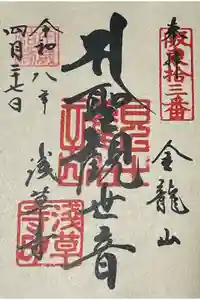 奉拝
坂東拾三番
金龍山
聖観世音
浅草寺
令和八年
四月二十七日
浅草寺印